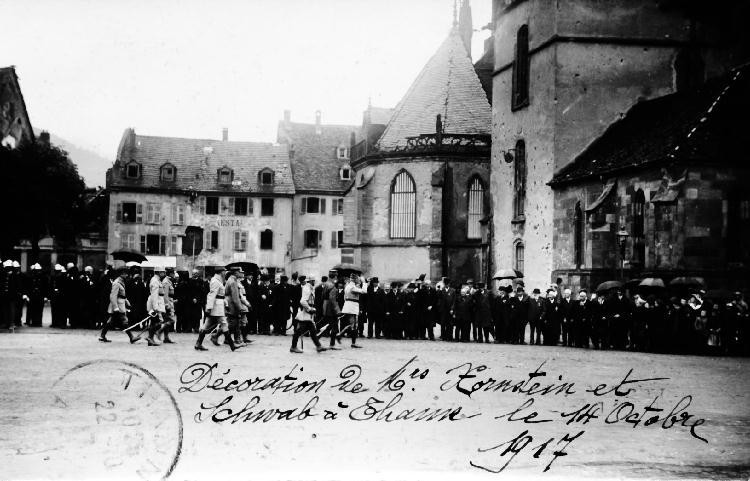 Décoration de Mrs Kornstein et
Schwab à Thann le 14 Octobre
1917